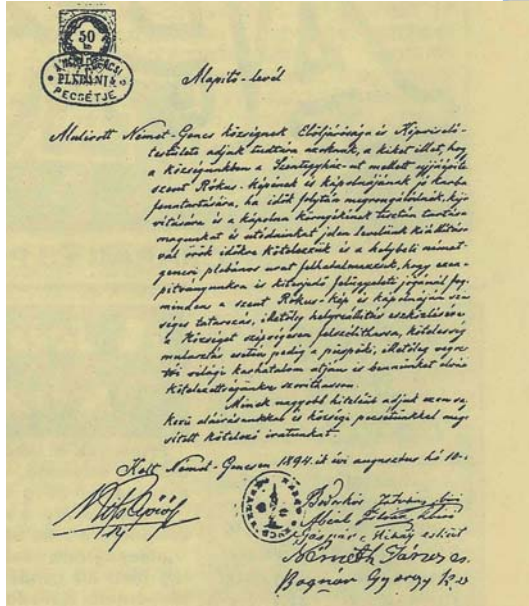 50
PLEBÁNIA
PECSÉTJE
Alapitó-levél
Alulirott Német-Gencs községnek Elöljárósága és Képviselő-
testülete adjuk tudtára azoknak, a kiket illet, hogy
a községünkben a Szentegyház-ut mellett ujjáépült
szent Rókus-képének és kápolnájának jó karba
fenntartására, ha idők folytán megrongálódnék, kija-
vitására és a kápolna környékének tisztán tartására
magunkat és utódainkat jelen levelünk kiállitásá-
val örök időkre kötelezzük és a helybeli német-
gencsi plébános urat felhatalmazzuk, hogy ezen
pitványunkra is kiterjedő felügyeleti jogánál fogva
minden a szent Rókus-kép és kápolnáján szük-
séges tatarozás, illetőleg helyreállitás eszközlésére
a községet szépségesen felszólithassa, kötelesség
mulasztás esetén pedig a püspöki, illetőleg
világi karhatalom utján is bennünket
kötelezettségünkre szorithasson.
Minek nagyobb hiteléül adjuk ezen sa-
kezű aláirásunkkal és községi pecsétünkkel meg-
sitett kötelező iratunkat.
Kelt Német-Gencsen 1894.ik évi augusztus hó 10-
István biró
Gáspár Mihály esküdt
Németh János es.
Bognár György